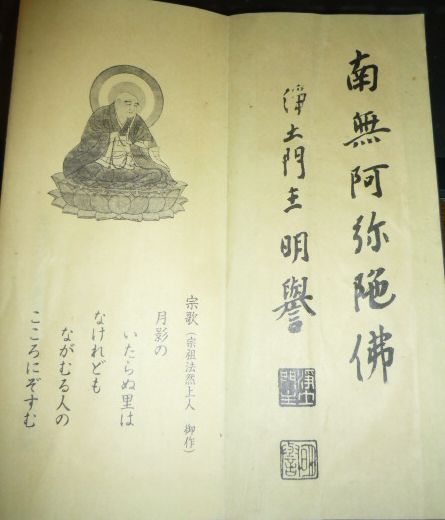 南無阿弥陀佛
浄土門主 明譽
浄土門主
明譽
宗歌（宗祖法然上人 御作）
月影の
いたらぬ里は
なけれども
ながむる人の
こころにぞすむ